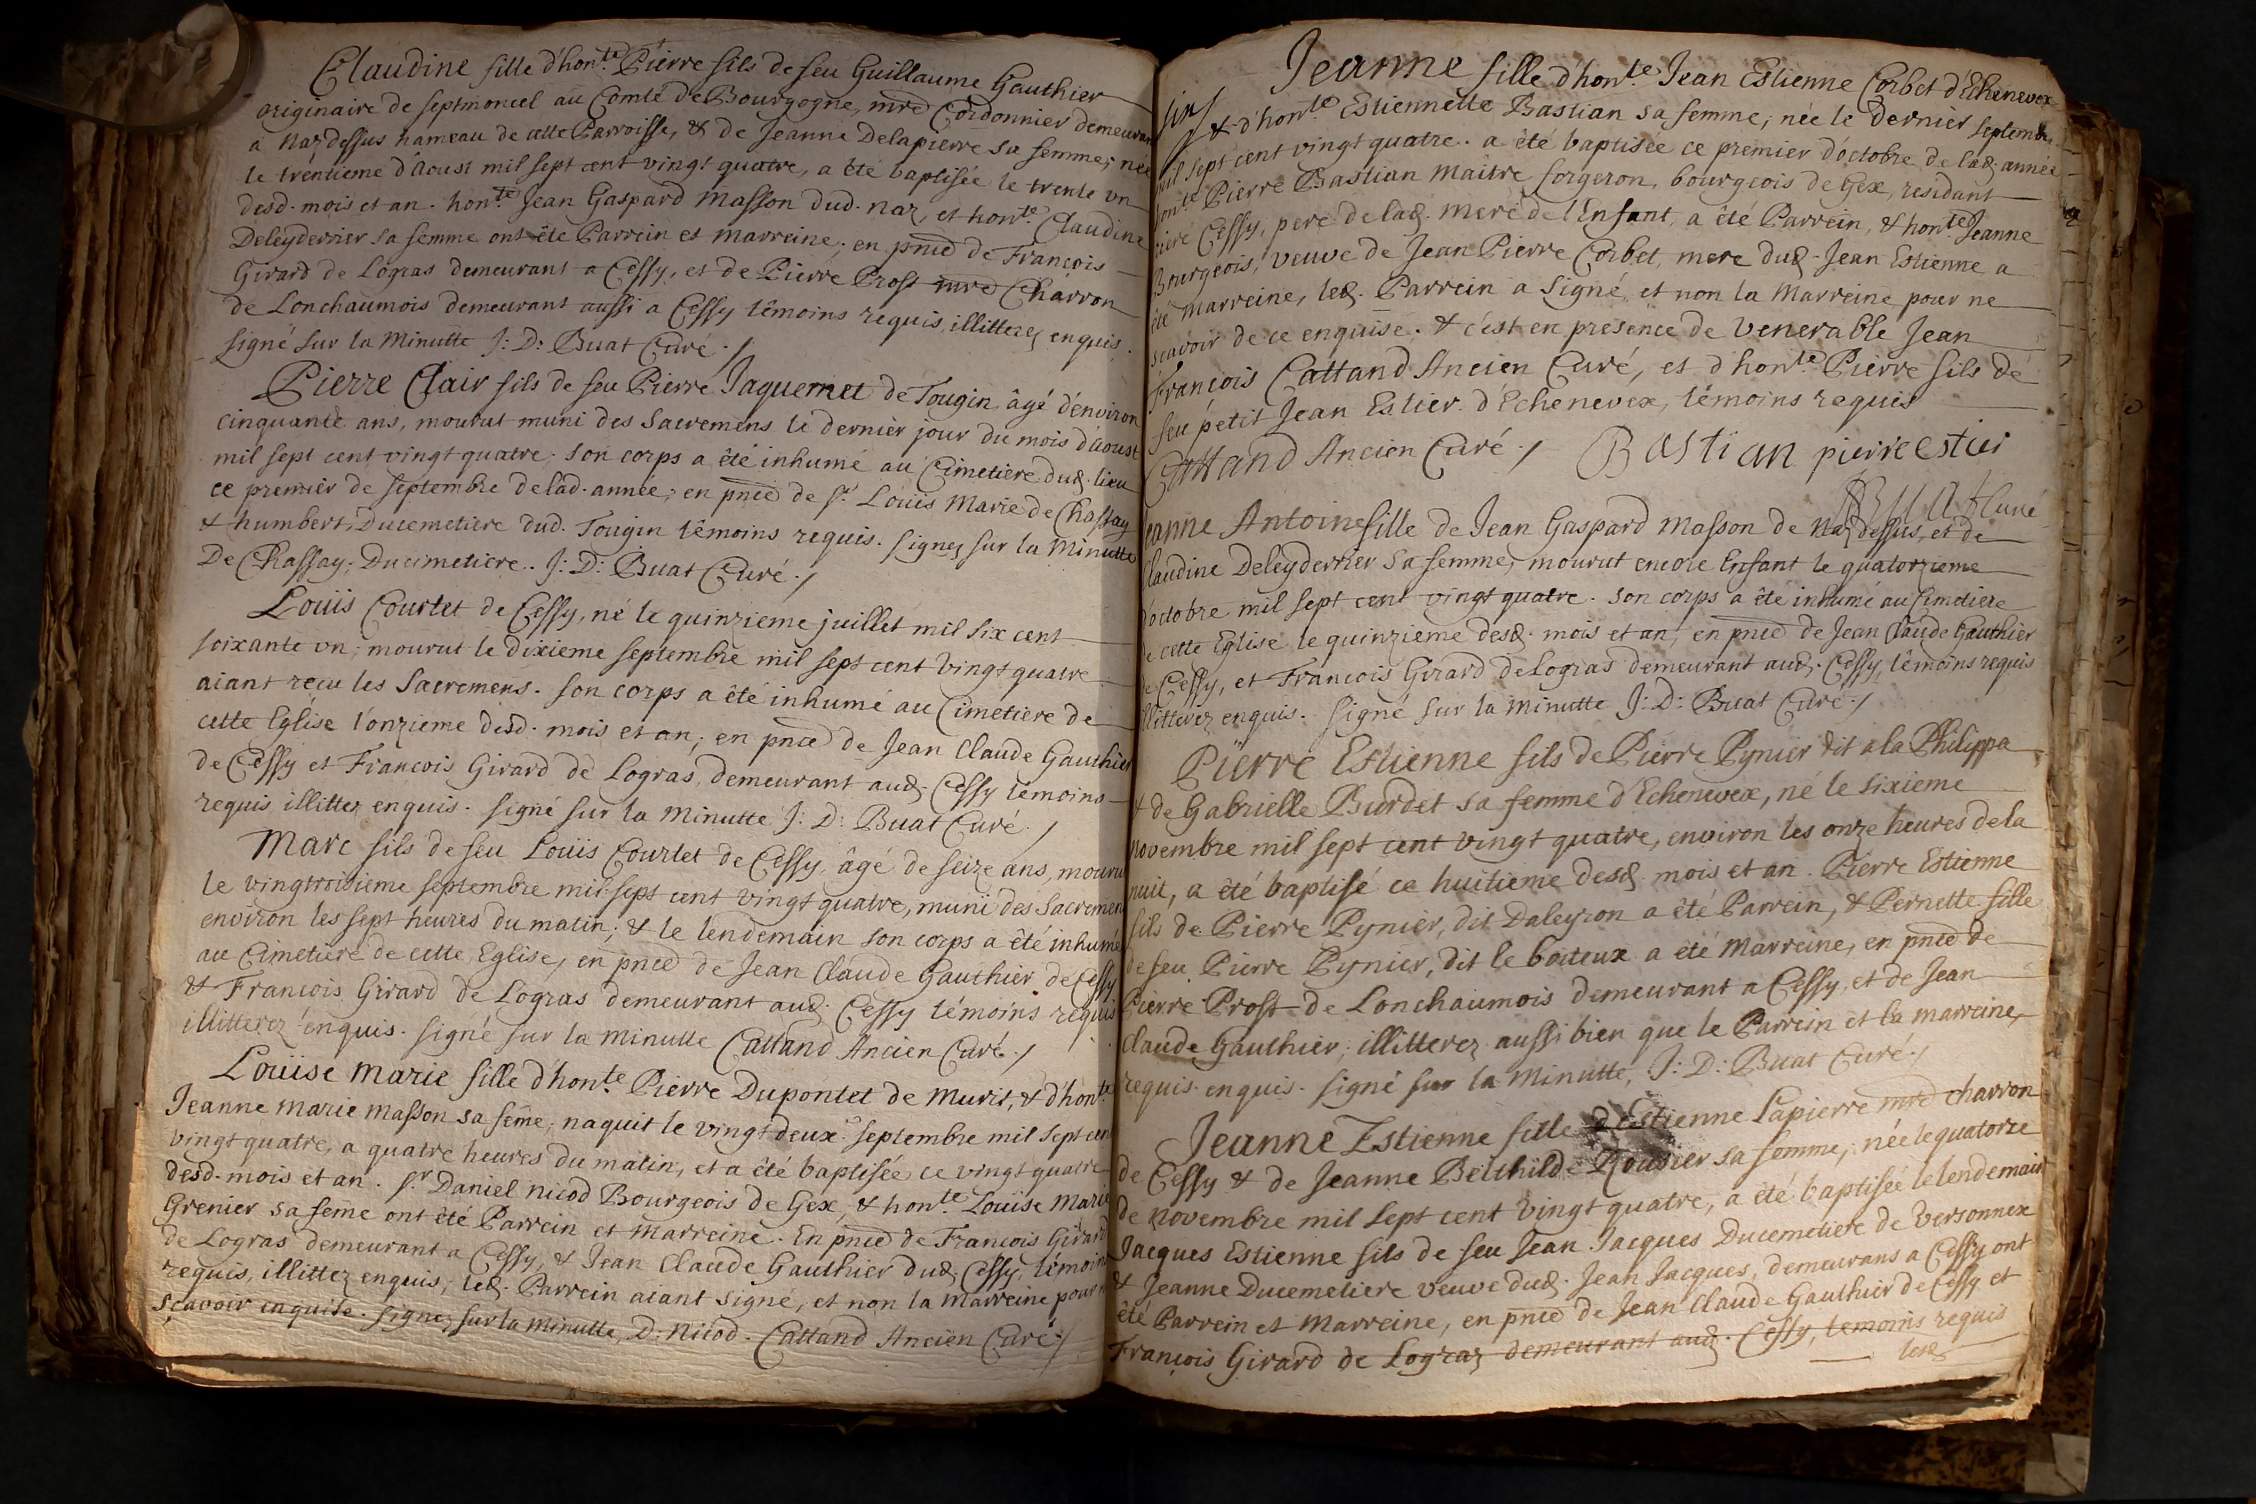 Claudine fille d'hon.te Pierre fils de feu Guillaume Gauthier
originaire de septmoncel au Comté de Bourgogne, mre Cordonnier demeurant
a Naz dessus hameau de cette Parroisse, & de Jeanne Delapierre sa femme, née
le trentieme d'Aoust mil sept cent vingt quatre, a été baptisée le trente un
desd. mois et an. hon.te Jean Gaspard Masson dud. Naz, et hon.te Claudine
Deleyderrier sa femme ont été Parrein et Marreine. en pnce de François
Girard de Logras demeurant a Cessy, et de Pierre Prost mre Charron
de Lonchaumois demeurant aussi a Cessy témoins requis, illitterez enquis.
signé sur la Minutte J: D: Buat Curé. /
Pierre Clair fils de feu Pierre Jaquemet de Tougin, âgé d'environ
cinquante ans, mourut muni des Sacremens le dernier jour du mois d'Aoust
mil sept cent vingt quatre. son corps a été inhumé au Cimetiere dud. lieu
ce premier de septembre de lad. année; en pnce de sr. Louis Marie de Chassay
& humbert Ducemetiere dud. Tougin témoins requis. signez sur la Minutte
De Chassay. Ducimetiere. J: D: Buat Curé. /
Louis Courtet de Cessy, né le quinzieme juillet mil six cent
soixante un, mourut le dixieme septembre mil sept cent vingt quatre
aiant reçu les Sacremens. son corps a été inhumé au Cimetiere de
cette Eglise l'onzieme desd. mois et an; en pnce de Jean Claude Gauthier
de Cessy et François Girard de Logras, demeurant aud. Cessy témoins
requis illittez enquis. signé sur la minutte J: D: Buat Curé. /
Marc fils de feu Louis Courtet de Cessy, âgé de seize ans, mourut
le vingtroisieme septembre mil sept cent vingt quatre, muni des Sacremens
environ les sept heures du matin; & le lendemain son corps a été inhumé
au Cimetiere de cette Eglise, en pnce de Jean Claude Gauthier de Cessy
& François Girard de Logras demeurant aud. Cessy témoins requis
illitterez enquis. signé sur la minutte Cattand Ancien Curé. /
Louise Marie fille d'hon.te Pierre Dupontet de Murit, & d'hon.te
Jeanne Marie Masson sa feme, naquit le vingtdeux.e septembre mil sept cent
vingt quatre, a quatre heures du matin, et a été baptisée ce vingt quatre
desd. mois et an. sr Daniel Nicod Bourgeois de Gex, & hon.te Louise Marie
Grenier sa feme ont été Parrein et Marreine. En pnce de François Girard
de Logras demeurant a Cessy, & Jean Claude Gauthier dud. Cessy, témoins
requis, illittez enquis, led. Parrein aiant signé, et non la Marreine pour ne
sçavoir enquise. signez sur la Minutte, D. Nicod. Cattand Ancien Curé /
Jeanne fille d'hon.te Jean Estienne Corbet d'Echenevex
& d'hon.te Estiennette Bastian sa femme, née le dernier septembre
mil sept cent vingt quatre. a été baptisée ce premier d'octobre de lad. année
hon.te Pierre Bastian Maitre forgeron, bourgeois de Gex, residant
riere Cessy, pere de lad. mere de l'Enfant, a été Parrein, & hon.te Jeanne
Bourgeois, veuve de Jean Pierre Corbet, mere dud. Jean Estienne a
été Marreine, led. Parrein a signé, et non la Marreine pour ne
sçavoir de ce enquise. & c'est en presence de Venerable Jean
François Cattand Ancien Curé, et d'hon.te Pierre fils de
feu petit Jean Estier d'Echenevex, témoins requis
Cattand Ancien Curé. / Bastian pierre estier
JDBuat Curé
Jeanne Antoine fille de Jean Gaspard Masson de Naz dessus, et de
Claudine Deleyderrier sa femme, mourut encore Enfant le quatorzieme
d'octobre mil sept cent vingt quatre. son corps a été inhumé au Cimetiere
de cette Eglise le quinzieme desd. mois et an, en pnce de Jean Claude Gauthier
de Cessy, et François Girard de Logras demeurant aud. Cessy, témoins requis
illitterez enquis. signé sur la minutte J: D: Buat Curé. /
Pierre Estienne fils de Pierre Pynier dit a la Philippa
& de Gabrielle Burdet sa femme d'Echenevex, né le sixieme
novembre mil sept cent vingt quatre, environ les onze heures de la
nuit, a été baptisé ce huitieme desd. mois et an. Pierre Estienne
fils de Pierre Pynier, dit Daleyron a été Parrein, & Pernette fille
de feu Pierre Pynier, dit le boiteux a été Marreine, en pnce de
Pierre Prost de Lonchaumois demeurant a Cessy, et de Jean
Claude Gauthier, illitterez aussi bien que le Parrein et la marreine,
requis enquis. signé sur la Minutte, J: D: Buat Curé. /
Jeanne Estienne fille d'Estienne Lapierre mre charron
de Cessy & de Jeanne Belthilde Rousier sa femme, née le quatorze
de novembre mil sept cent vingt quatre, a été baptisée le lendemain
Jacques Estienne fils de feu Jean Jacques Ducemetiere de Versonnex
& Jeanne Ducemetiere veuve dud. Jean Jacques, demeurans a Cessy ont
été Parrein et Marreine, en pnce de Jean Claude Gauthier de Cessy et
François Girard de Lograz demeurant aud. Cessy, temoins requis
lesd.